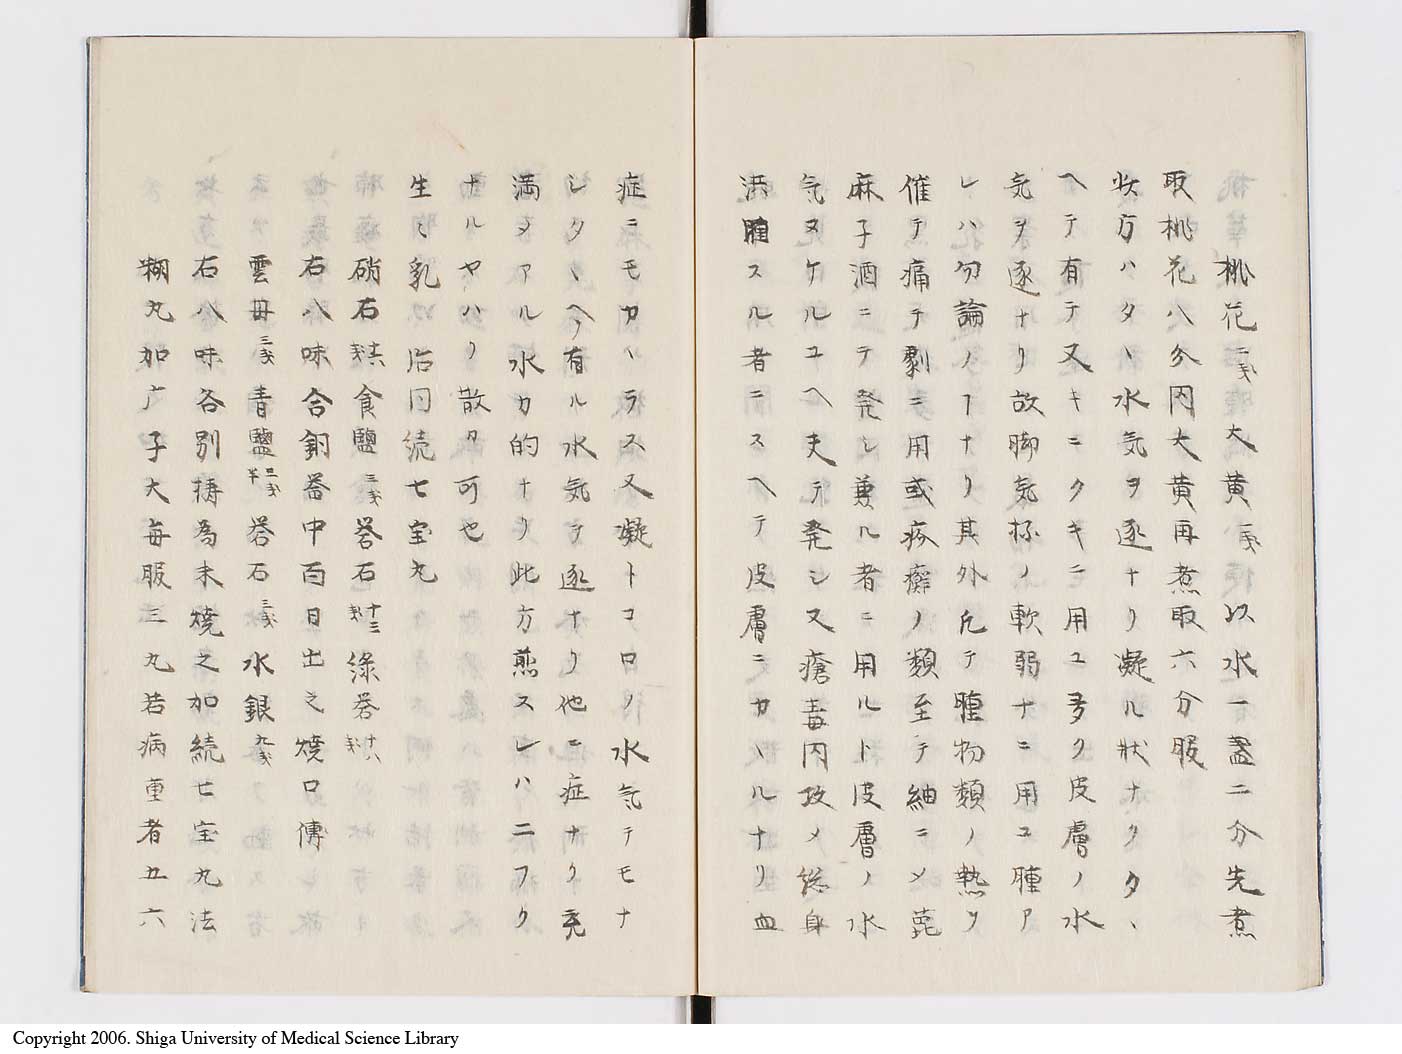 桃花二戔大黄一戔以水一盞二分先煮
取桃花八分内大黄再煮取六分服
状方ハタヽ水気ヲ逐ナリ凝ル状ナクタヽ
ヘテ有テ又キニクキニ用ユ多ク皮膚ノ水
気ヲ逐ナリ故脚気抔ノ軟弱ナニ用ユ腫ア
レハ勿論ノヿナリ其外凡テ腫物類ノ熱ヲ
催テ痛テ劇ニ用或疥癬ノ類至テ細ニメ蓖
麻子酒ニテ発シ兼ルル者ニ用ルト皮膚ノ水
気ヌケルユヘ夫テ発シ又瘡毒内攻メ総身
洪腫スル者ニスヘテ皮膚ニカヽルナリ血
症ニモカヽラス又凝トコロノ水気テモナ
シタヽヘノ有ル水気テ逐ナリ他ニ症ナク充
満メアル水カ的ナリ此方煎スレハ二フク
ナルヤハリ散カ可也
生々乳 治同続七宝丸
硝石 食鹽三戔 礬石十三戔 緑礬十八戔
右八味合銅器中百日出之焼口傳
雲母三戔 青鹽二戔半 礬石三戔 水銀九戔
右八味各別擣為末焼之加続七宝丸法
糊丸如广子大毎服三丸若病重者五六